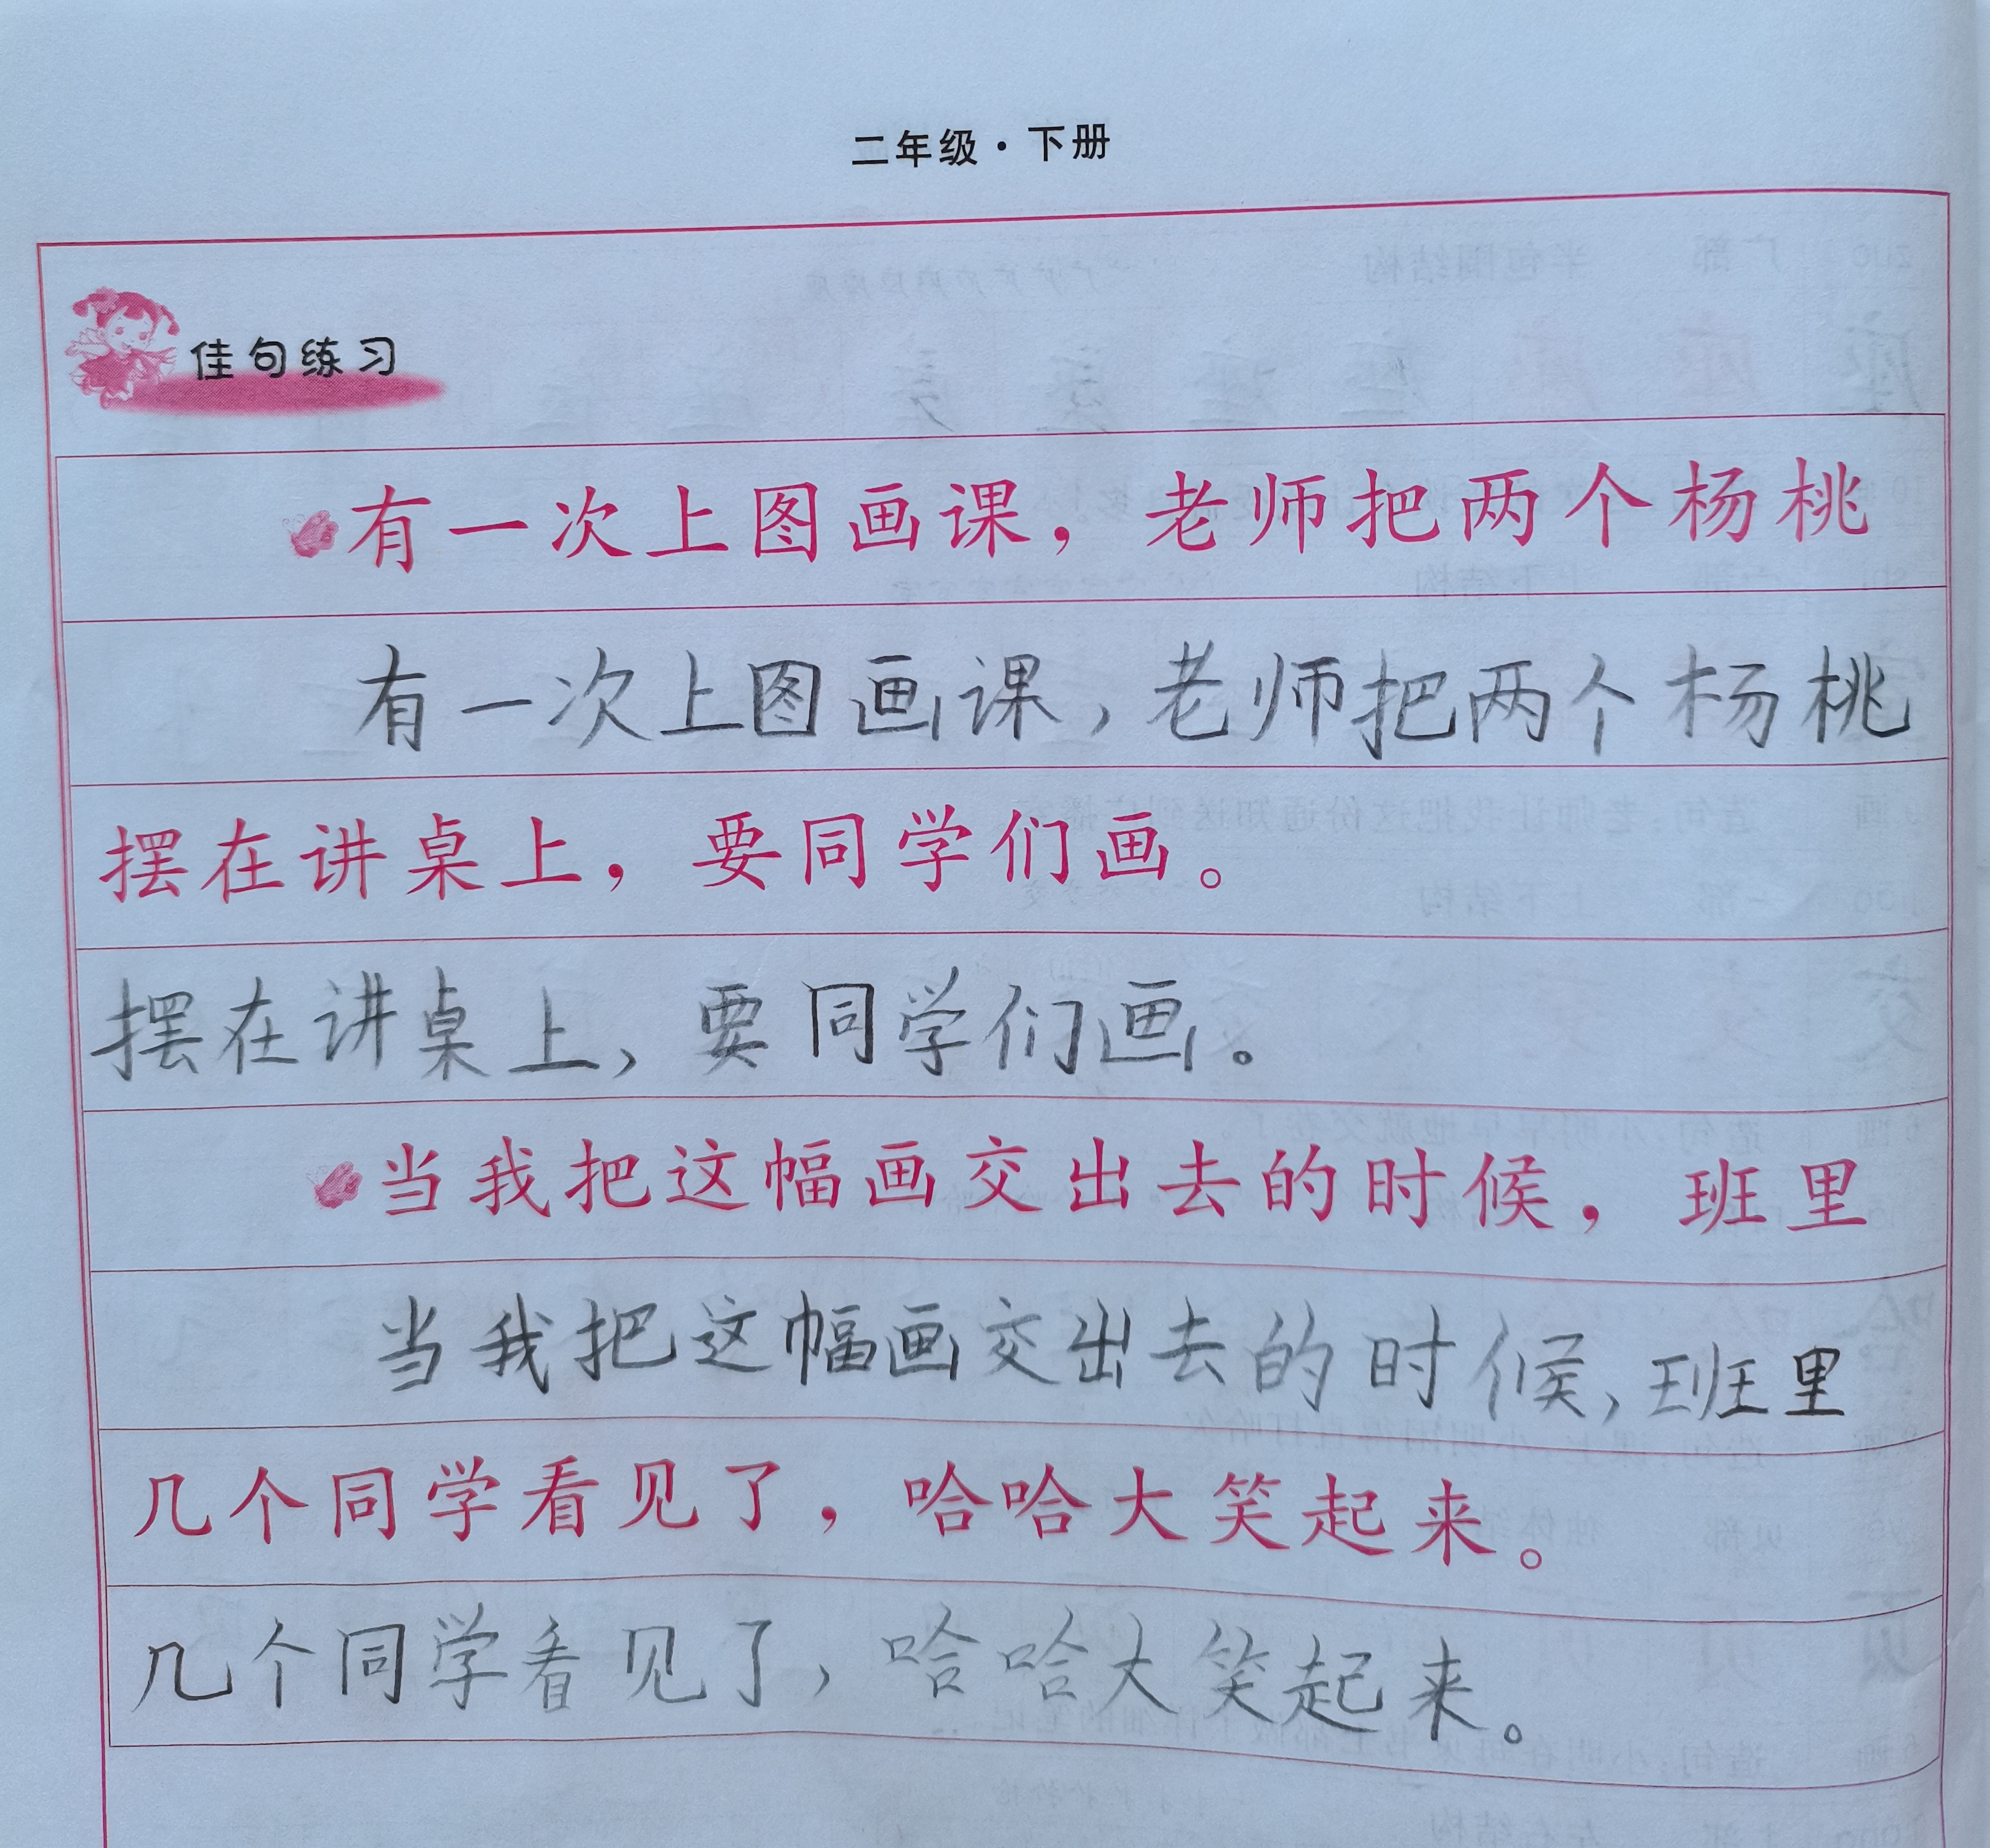 二年级·下册
佳句练习
有一次上图画课，老师把两个杨桃
有一次上图画课，老师把两个杨桃
摆在讲桌上，要同学们画。
摆在讲桌上，要同学们画。
当我把这幅画交出去的时候，班里
当我把这幅画交出去的时候，班里
几个同学看见了，哈哈大笑起来。
几个同学看见了，哈哈大笑起来。